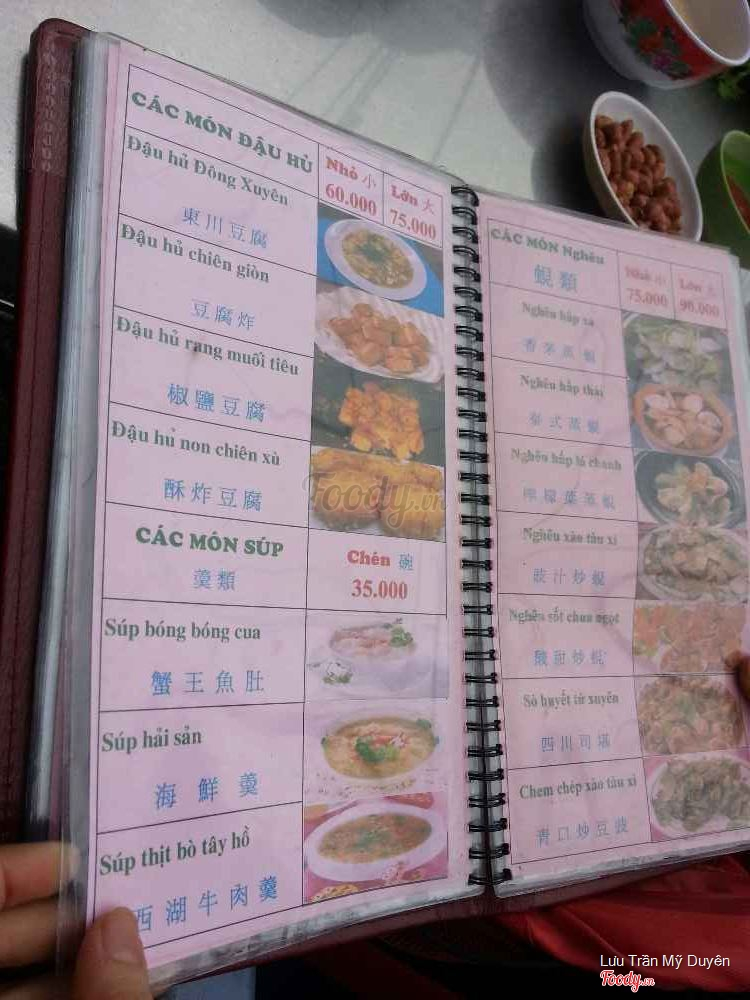 CÁC MÓN ĐẬU HỦ
Nhỏ 小
60.000
Lớn 大
75.000
Đậu hủ Đông Xuyên
東川豆腐
Đậu hủ chiên giòn
豆腐炸
Đậu hủ rang muối tiêu
椒鹽豆腐
Đậu hủ non chiên xù
酥炸豆腐
CÁC MÓN SÚP
羹類
Chén 碗
35.000
Súp bóng bóng cua
蟹王魚肚
Súp hải sản
海鮮羹
Súp thịt bò tây hồ
西湖牛肉羹
CÁC MÓN Nghêu
蜆類
Nhỏ 小
75.000
Lớn 大
90.000
Nghêu hấp xả
香茅蒸蜆
Nghêu hấp thái
泰式蒸蜆
Nghêu hấp lá chanh
檸檬葉蒸蜆
Nghêu xào tàu xì
豉汁炒蜆
Nghêu sốt chua ngọt
酸甜炒蜆
Sò huyết tứ xuyên
四川司堪
Chem chép xào tàu xì
青口炒豆豉
Foody.vn
Lưu Trần Mỹ Duyên
Foody.vn